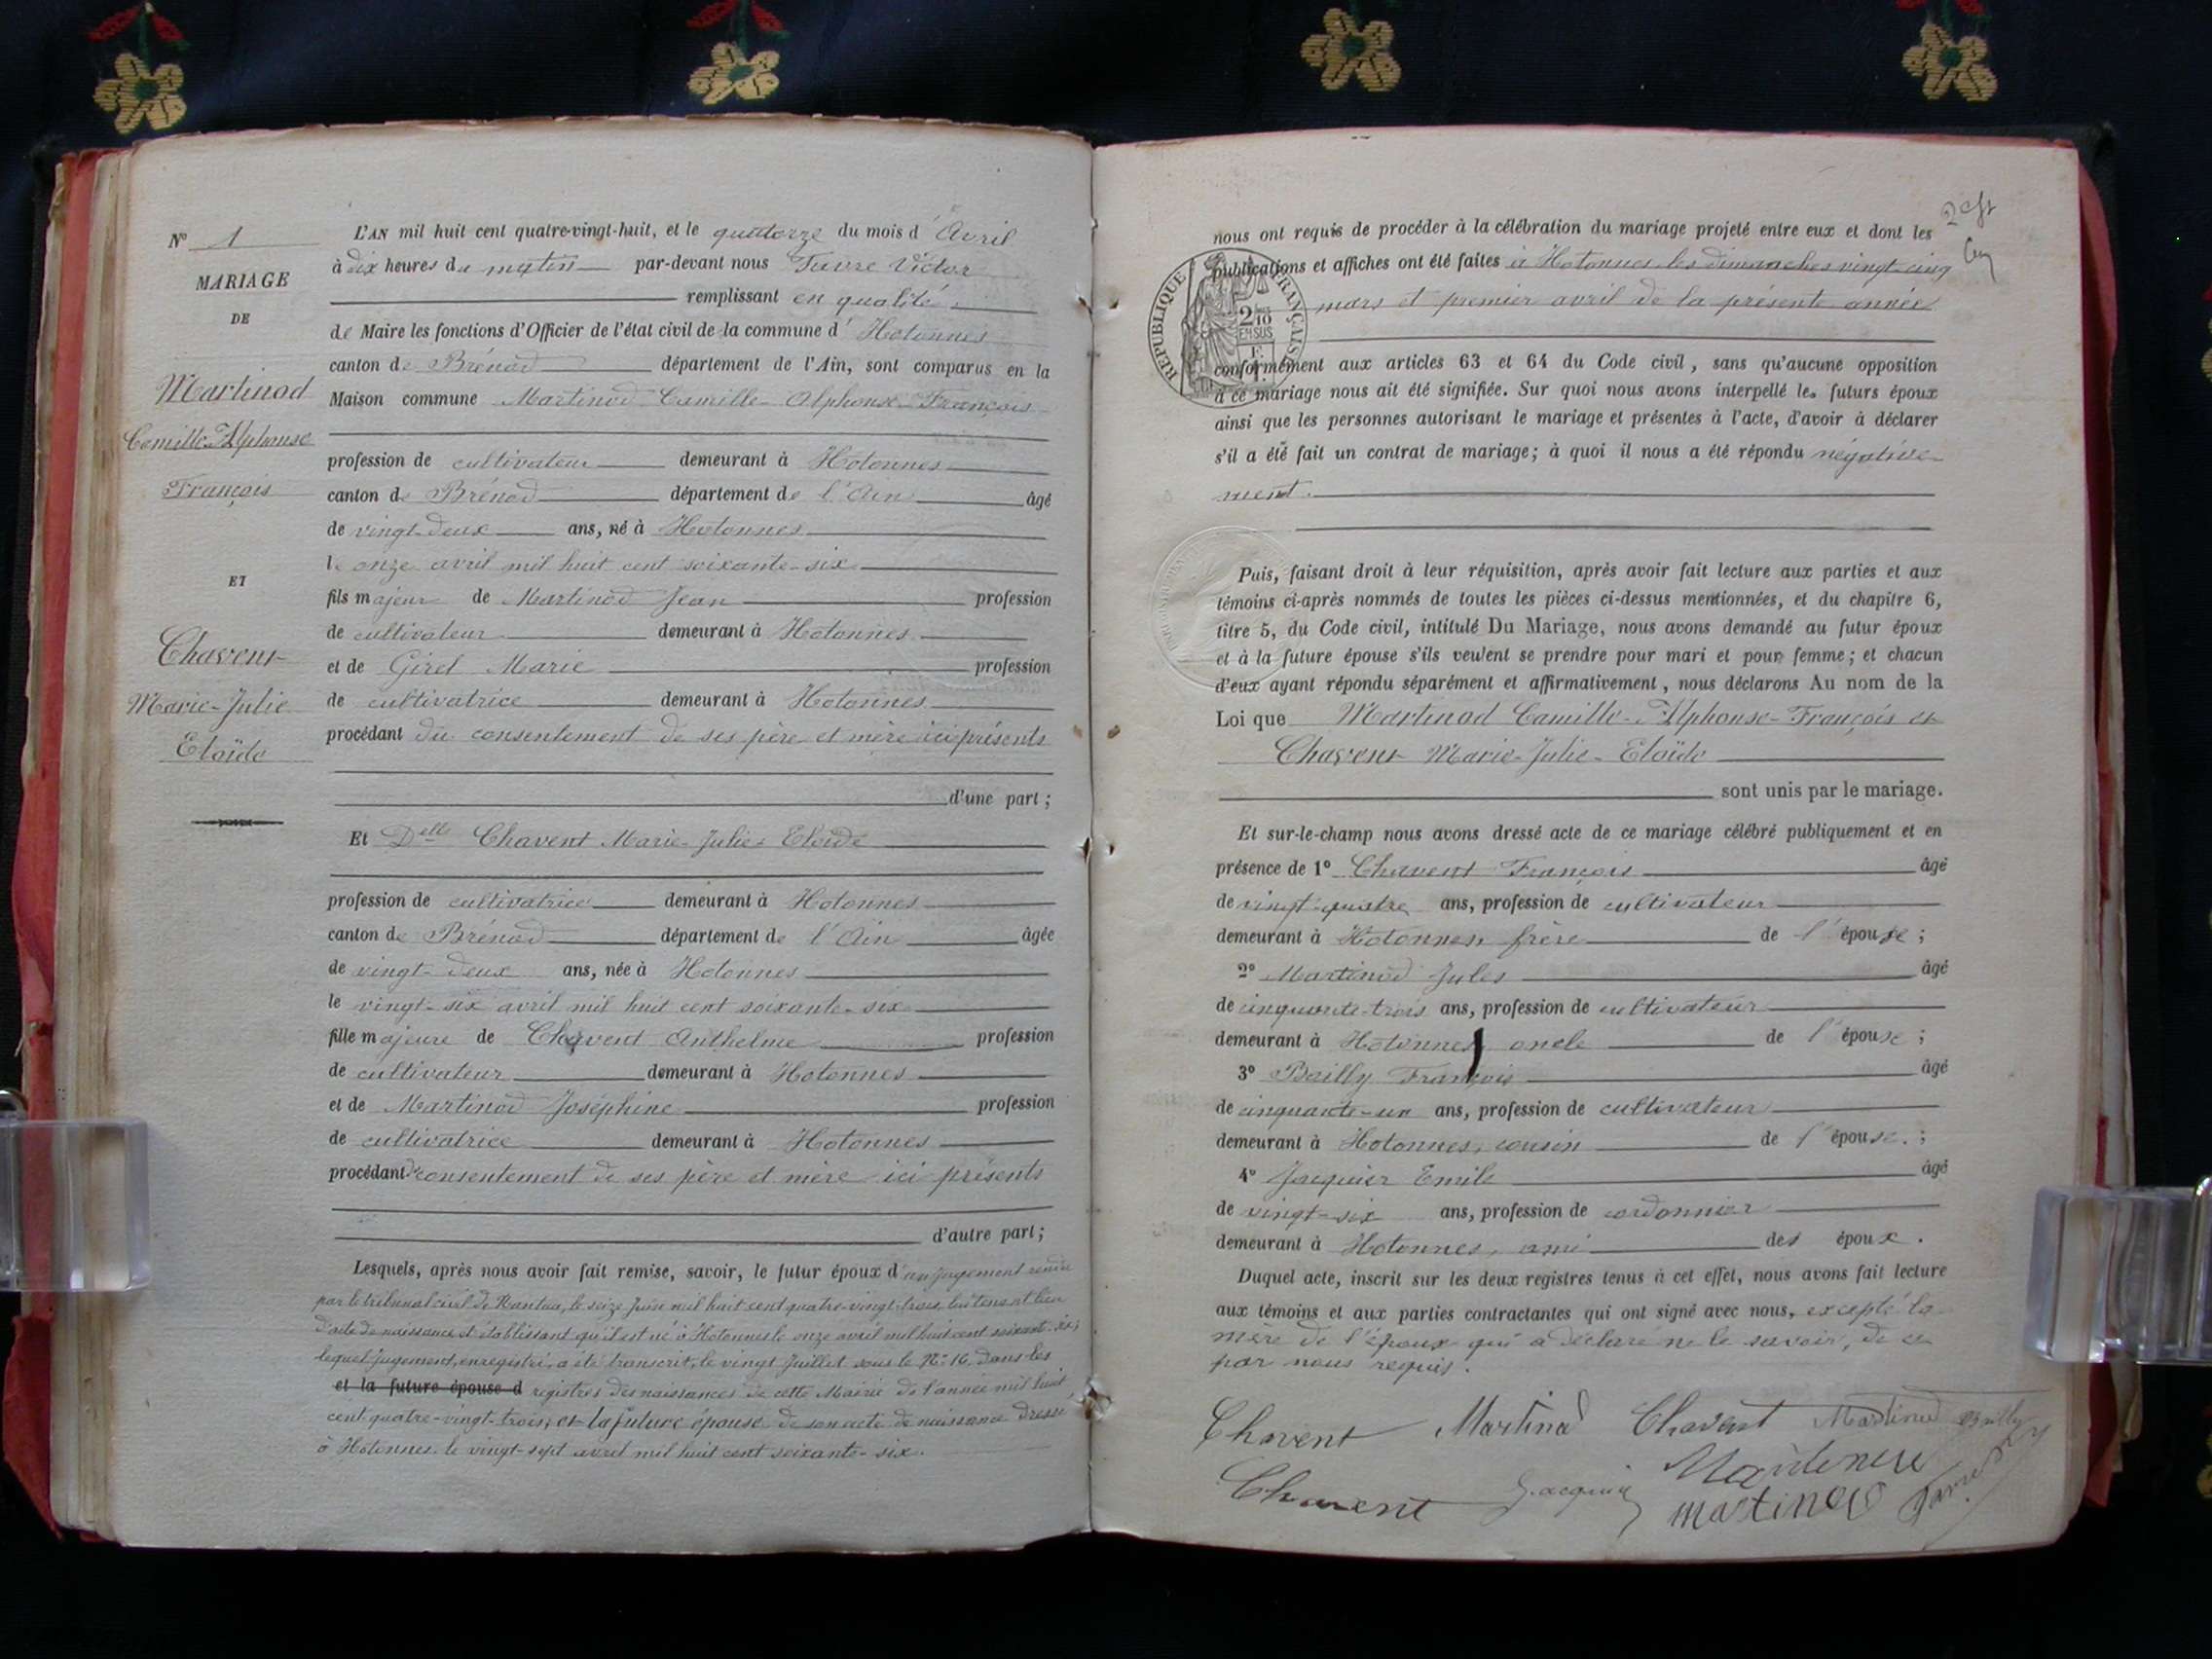 N° 1
MARIAGE
DE
Martinod
Camille-Alphonse
François
ET
Chavent
Marie-Julie
Eloïde
L'AN mil huit cent quatre-vingt-huit, et le quatorze du mois d'Avril
à dix heures du matin par-devant nous Tavre Victor
remplissant en qualité
de Maire les fonctions d'Officier de l'état civil de la commune d'Hotonnes
canton de Brénod département de l'Ain, sont comparus en la
Maison commune Martinod Camille-Alphonse-François
profession de cultivateur demeurant à Hotonnes
canton de Brénod département de l'Ain âgé
de vingt-deux ans, né à Hotonnes
le onze avril mil huit cent soixante-six
fils majeur de Martinod Jean profession
de cultivateur demeurant à Hotonnes
et de Girel Marie profession
de cultivatrice demeurant à Hotonnes
procédant du consentement de ses père et mère ici présents
d'une part;
Et Delle Chavent Marie-Julie-Eloïde
profession de cultivatrice demeurant à Hotonnes
canton de Brénod département de l'Ain âgée
de vingt-deux ans, née à Hotonnes
le vingt-six avril mil huit cent soixante-six
fille majeure de Chavent Anthelme profession
de cultivateur demeurant à Hotonnes
et de Martinod Joséphine profession
de cultivatrice demeurant à Hotonnes
procédant du consentement de ses père et mère ici présents
d'autre part;
Lesquels, après nous avoir fait remise, savoir, le futur époux d'un jugement rendu
par le tribunal civil de Nantua, le seize Juin mil huit cent quatre-vingt-trois, lui tenant lieu
d'acte de naissance et établissant qu'il est né à Hotonnes le onze avril mil huit cent soixante-six;
lequel jugement, enregistré, a été transcrit, le vingt Juillet sous le N° 16 dans les
et la future épouse d registres des naissances de cette Mairie de l'année mil huit
cent quatre-vingt-trois; et la future épouse de son acte de naissance dressé
à Hotonnes le vingt-sept avril mil huit cent soixante-six.
nous ont requis de procéder à la célébration du mariage projeté entre eux et dont les
publications et affiches ont été faites à Hotonnes les dimanches vingt-cinq
mars et premier avril de la présente année
RÉPUBLIQUE FRANÇAISE
2/10
EN SUS
conformément aux articles 63 et 64 du Code civil, sans qu'aucune opposition
à ce mariage nous ait été signifiée. Sur quoi nous avons interpellé les futurs époux
ainsi que les personnes autorisant le mariage et présentes à l'acte, d'avoir à déclarer
s'il a été fait un contrat de mariage; à quoi il nous a été répondu négative-
ment.
Puis, faisant droit à leur réquisition, après avoir fait lecture aux parties et aux
témoins ci-après nommés de toutes les pièces ci-dessus mentionnées, et du chapitre 6,
titre 5, du Code civil, intitulé Du Mariage, nous avons demandé au futur époux
et à la future épouse s'ils veulent se prendre pour mari et pour femme; et chacun
d'eux ayant répondu séparément et affirmativement, nous déclarons Au nom de la
Loi que Martinod Camille-Alphonse-François et
Chavent Marie-Julie-Eloïde
sont unis par le mariage.
Et sur-le-champ nous avons dressé acte de ce mariage célébré publiquement et en
présence de 1° Chavent François âgé
de vingt-quatre ans, profession de cultivateur
demeurant à Hotonnes, frère de l'épouse;
2° Martinod Jules âgé
de cinquante-trois ans, profession de cultivateur
demeurant à Hotonnes, oncle de l'épouse;
3° Bailly François âgé
de cinquante-un ans, profession de cultivateur
demeurant à Hotonnes, cousin de l'épouse.;
4° Jacquier Emile âgé
de vingt-six ans, profession de cordonnier
demeurant à Hotonnes, ami des époux.
Duquel acte, inscrit sur les deux registres tenus à cet effet, nous avons fait lecture
aux témoins et aux parties contractantes qui ont signé avec nous, excepté la
mère de l'époux qui a déclaré ne le savoir, de ce
par nous requis.
Chavent Martinod Chavent Martinod Bailly
Chavent Jacquier Martinod
martinod